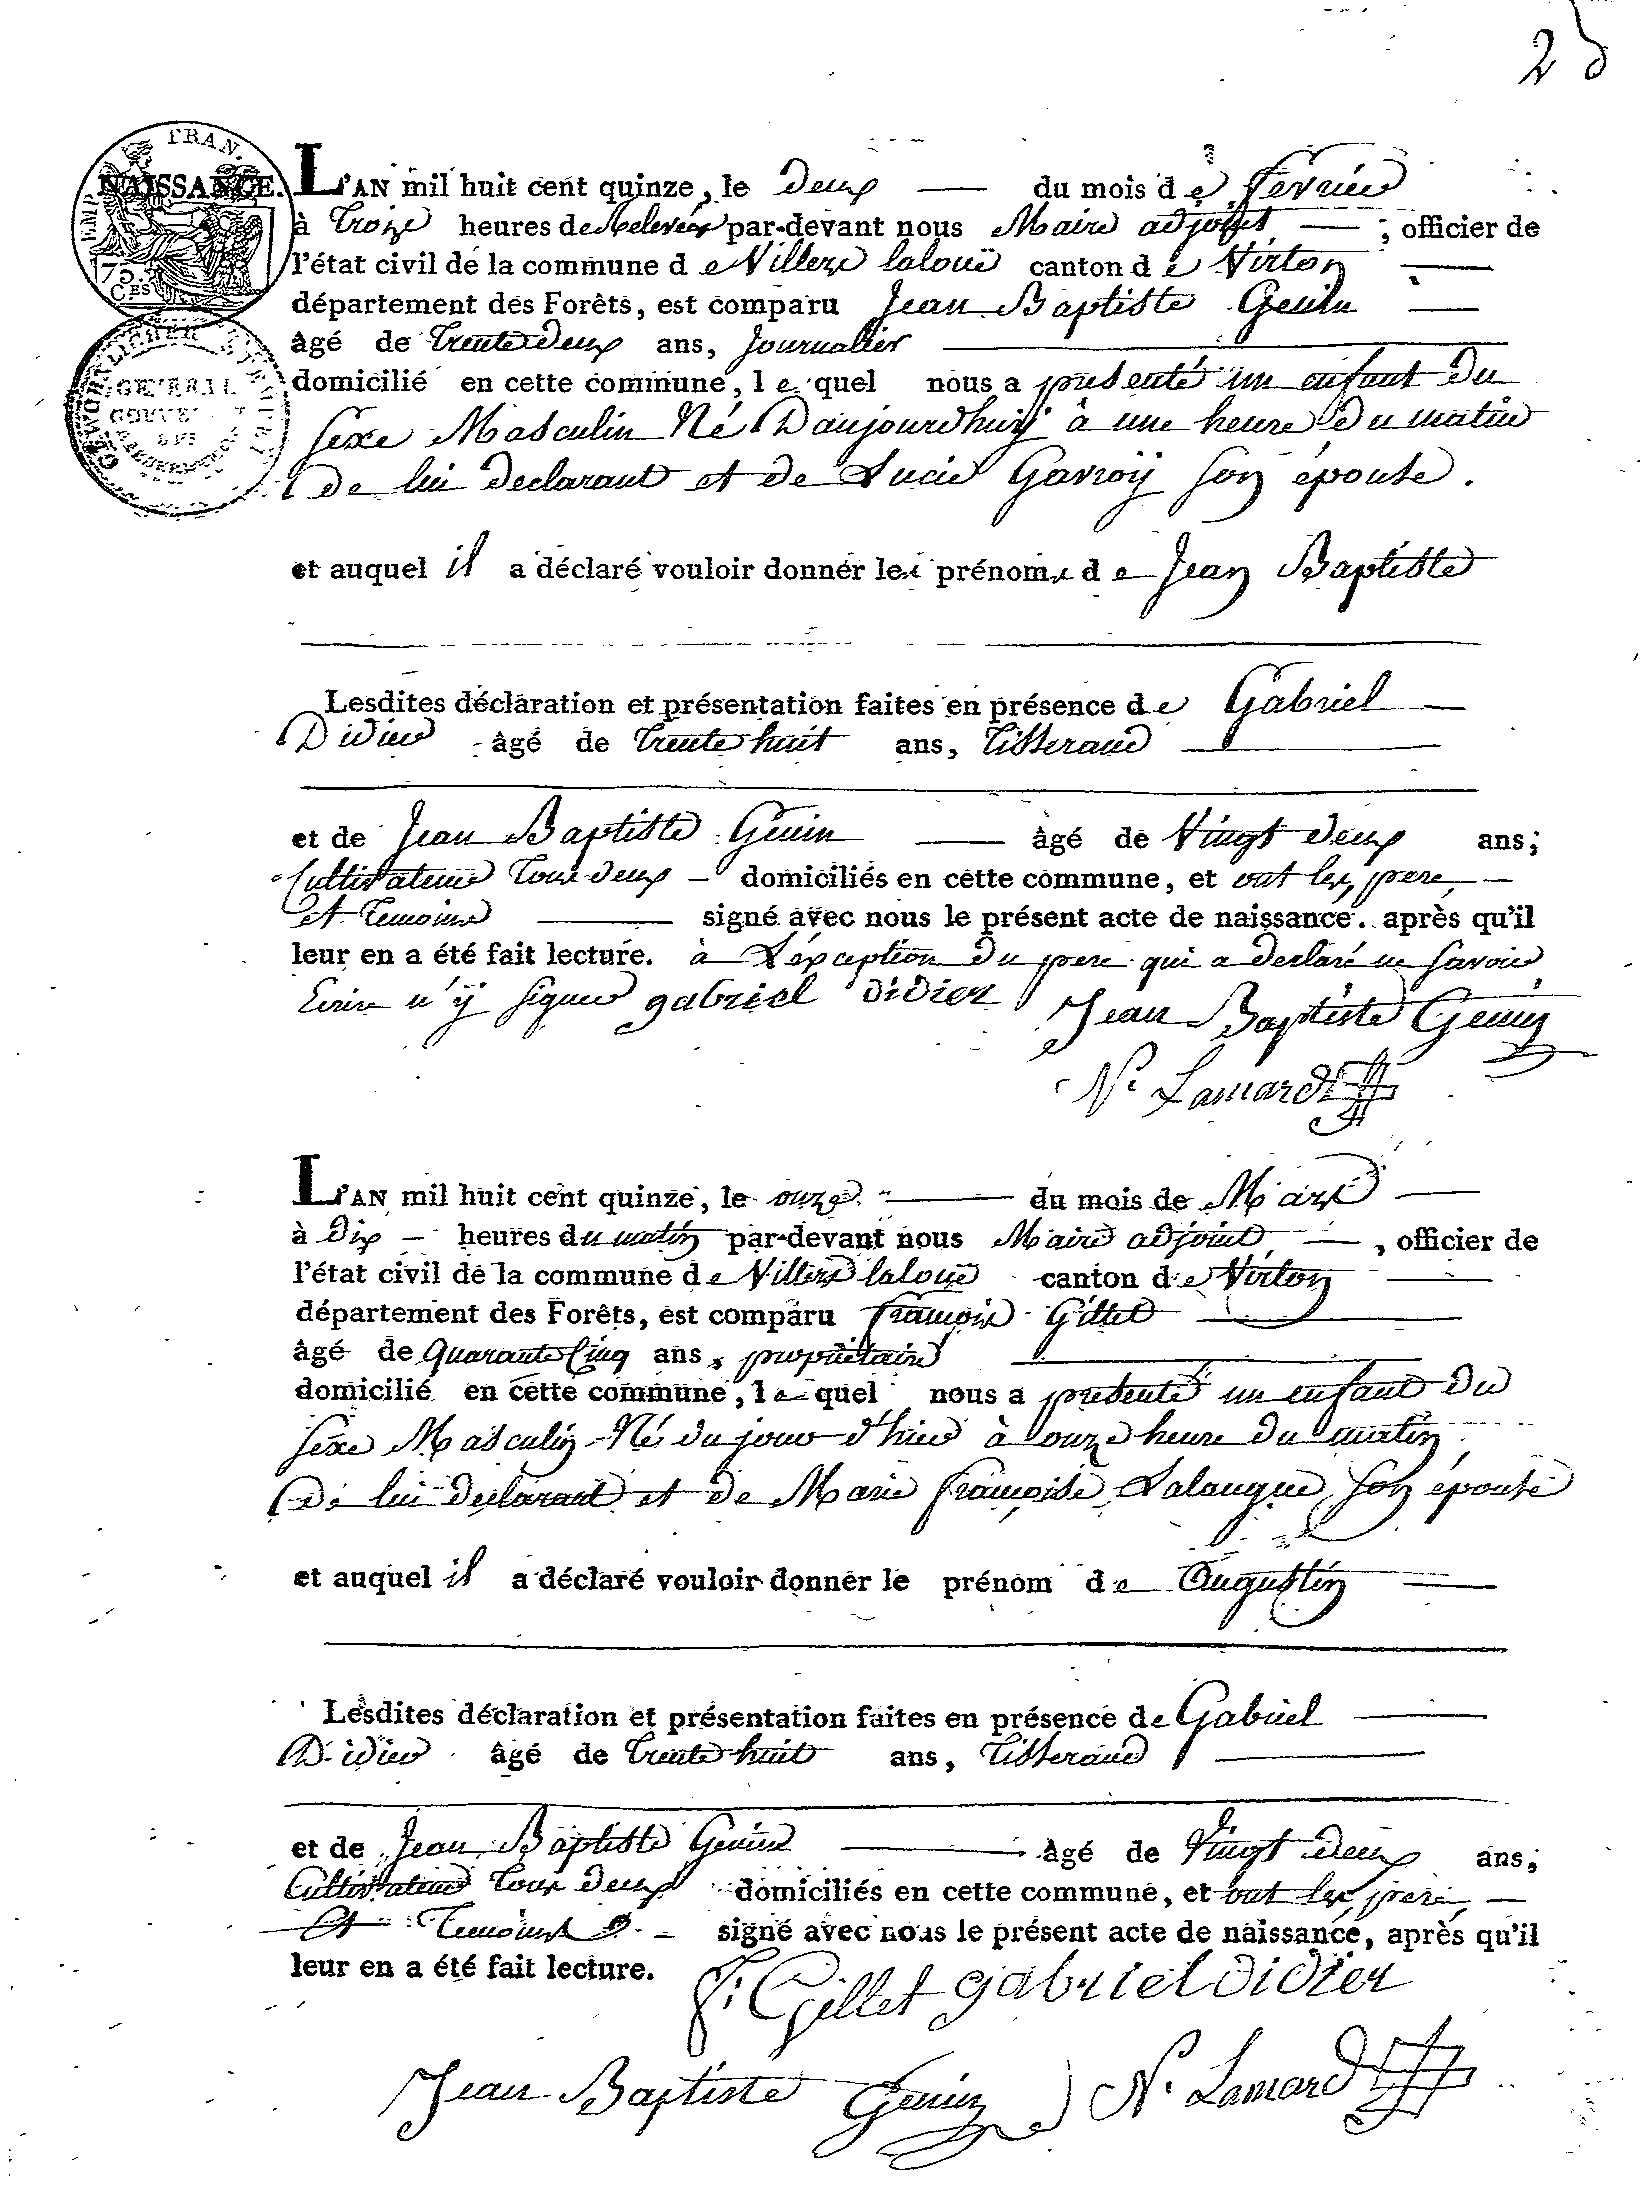 25
EMP. FRAN.
75.
CES
GENERAL
GOUVE
NAISSANCE. L'AN mil huit cent quinze, le deux du mois de fevrier
à troix heures de Relevéez par-devant nous Maire adjoint, officier de
l'état civil de la commune de Villerz laloüe canton de Virton
département des Forêts, est comparu Jean Baptiste Genin
âgé de trente deux ans, journalier
domicilié en cette commune, lequel nous a présenté un enfant du
sexe Masculin Né Daujourdhuy à une heure du matin
De lui declarant et de Lucie Gavroÿ son épouse.
et auquel il a déclaré vouloir donner les prénoms de Jean Baptiste
Lesdites déclaration et présentation faites en présence de Gabriel
Didier âgé de trente huit ans, tisserand
et de Jean Baptiste Genin âgé de Vingt deux ans;
Cultivateur tous deux domiciliés en cette commune, et ont les, pere,
et temoins signé avec nous le présent acte de naissance. après qu'il
leur en a été fait lecture. à L'éxception du pere qui a declaré ne savoir
Ecrire n'ÿ signer gabriel didier Jean Baptiste Genin
N. Lamard
L'AN mil huit cent quinze, le onze du mois de Mars
à Dix heures du matin par-devant nous Maire adjoint, officier de
l'état civil de la commune de Villerz laloüe canton de Virton
département des Forêts, est comparu françois Gillet
âgé de Quarante Cinq ans, propriétaire
domicilié en cette commune, lequel nous a présenté un enfant du
sexe Masculin Né du jour d'hier à onze heure du matin
De lui declarant et de Marie françoise Lalangue son épouse
et auquel il a déclaré vouloir donner le prénom de Augustin
Lesdites déclaration et présentation faites en présence de Gabriel
Didier âgé de trente huit ans, tisserand
et de Jean Baptiste Genin âgé de Vingt deux ans;
Cultivateur tous deux domiciliés en cette commune, et ont les, pere,
et temoins signé avec nous le présent acte de naissance, après qu'il
leur en a été fait lecture. f. Gillet gabriel didier
Jean Baptiste Genin N. Lamard